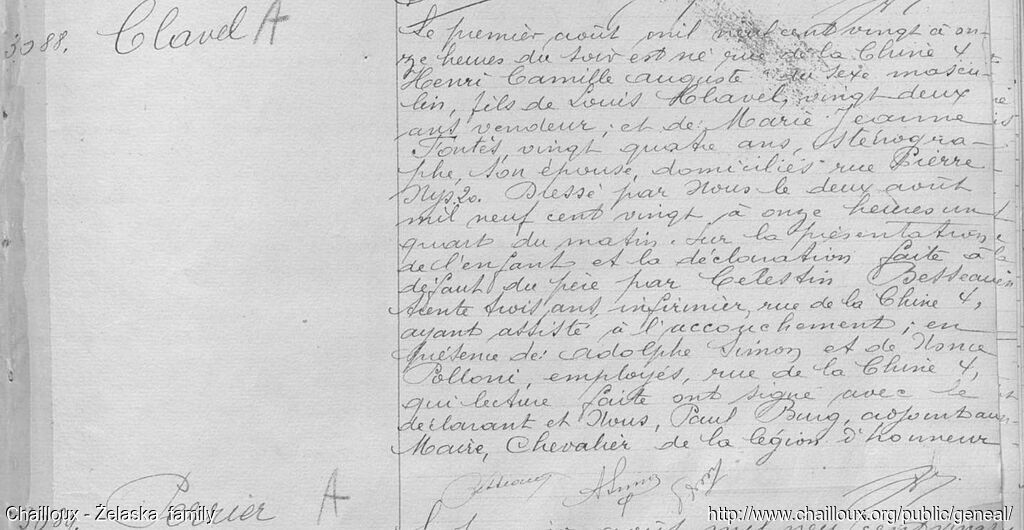 3088.
Clavel A
Le premier août mil neuf cent vingt à on-
ze heures du soir est né rue de la Chine 4,
Henri Camille Auguste du sexe mascu-
lin, fils de Louis Clavel, vingt deux
ans vendeur; et de Marie Jeanne
Fontés, vingt quatre ans, sténogra-
phe, son épouse, domiciliés rue Pierre
Nys 20. Dressé par Nous le deux août
mil neuf cent vingt à onze heures un
quart du matin. Sur la présentation
de l'enfant et la déclaration faite à
défaut du père par Celestin
trente trois ans, infirmier, rue de la Chine 4,
ayant assisté à l'accouchement; en
présence de: Adolphe Simon et de
Polloni, employés, rue de la Chine 4,
qui lecture faite ont signé avec le
déclarant et Nous, Paul Burg, adjoint au
Maire, Chevalier de la légion d'honneur
A
Chailloux - Żelaska family
http://www.chailloux.org/public/geneal/